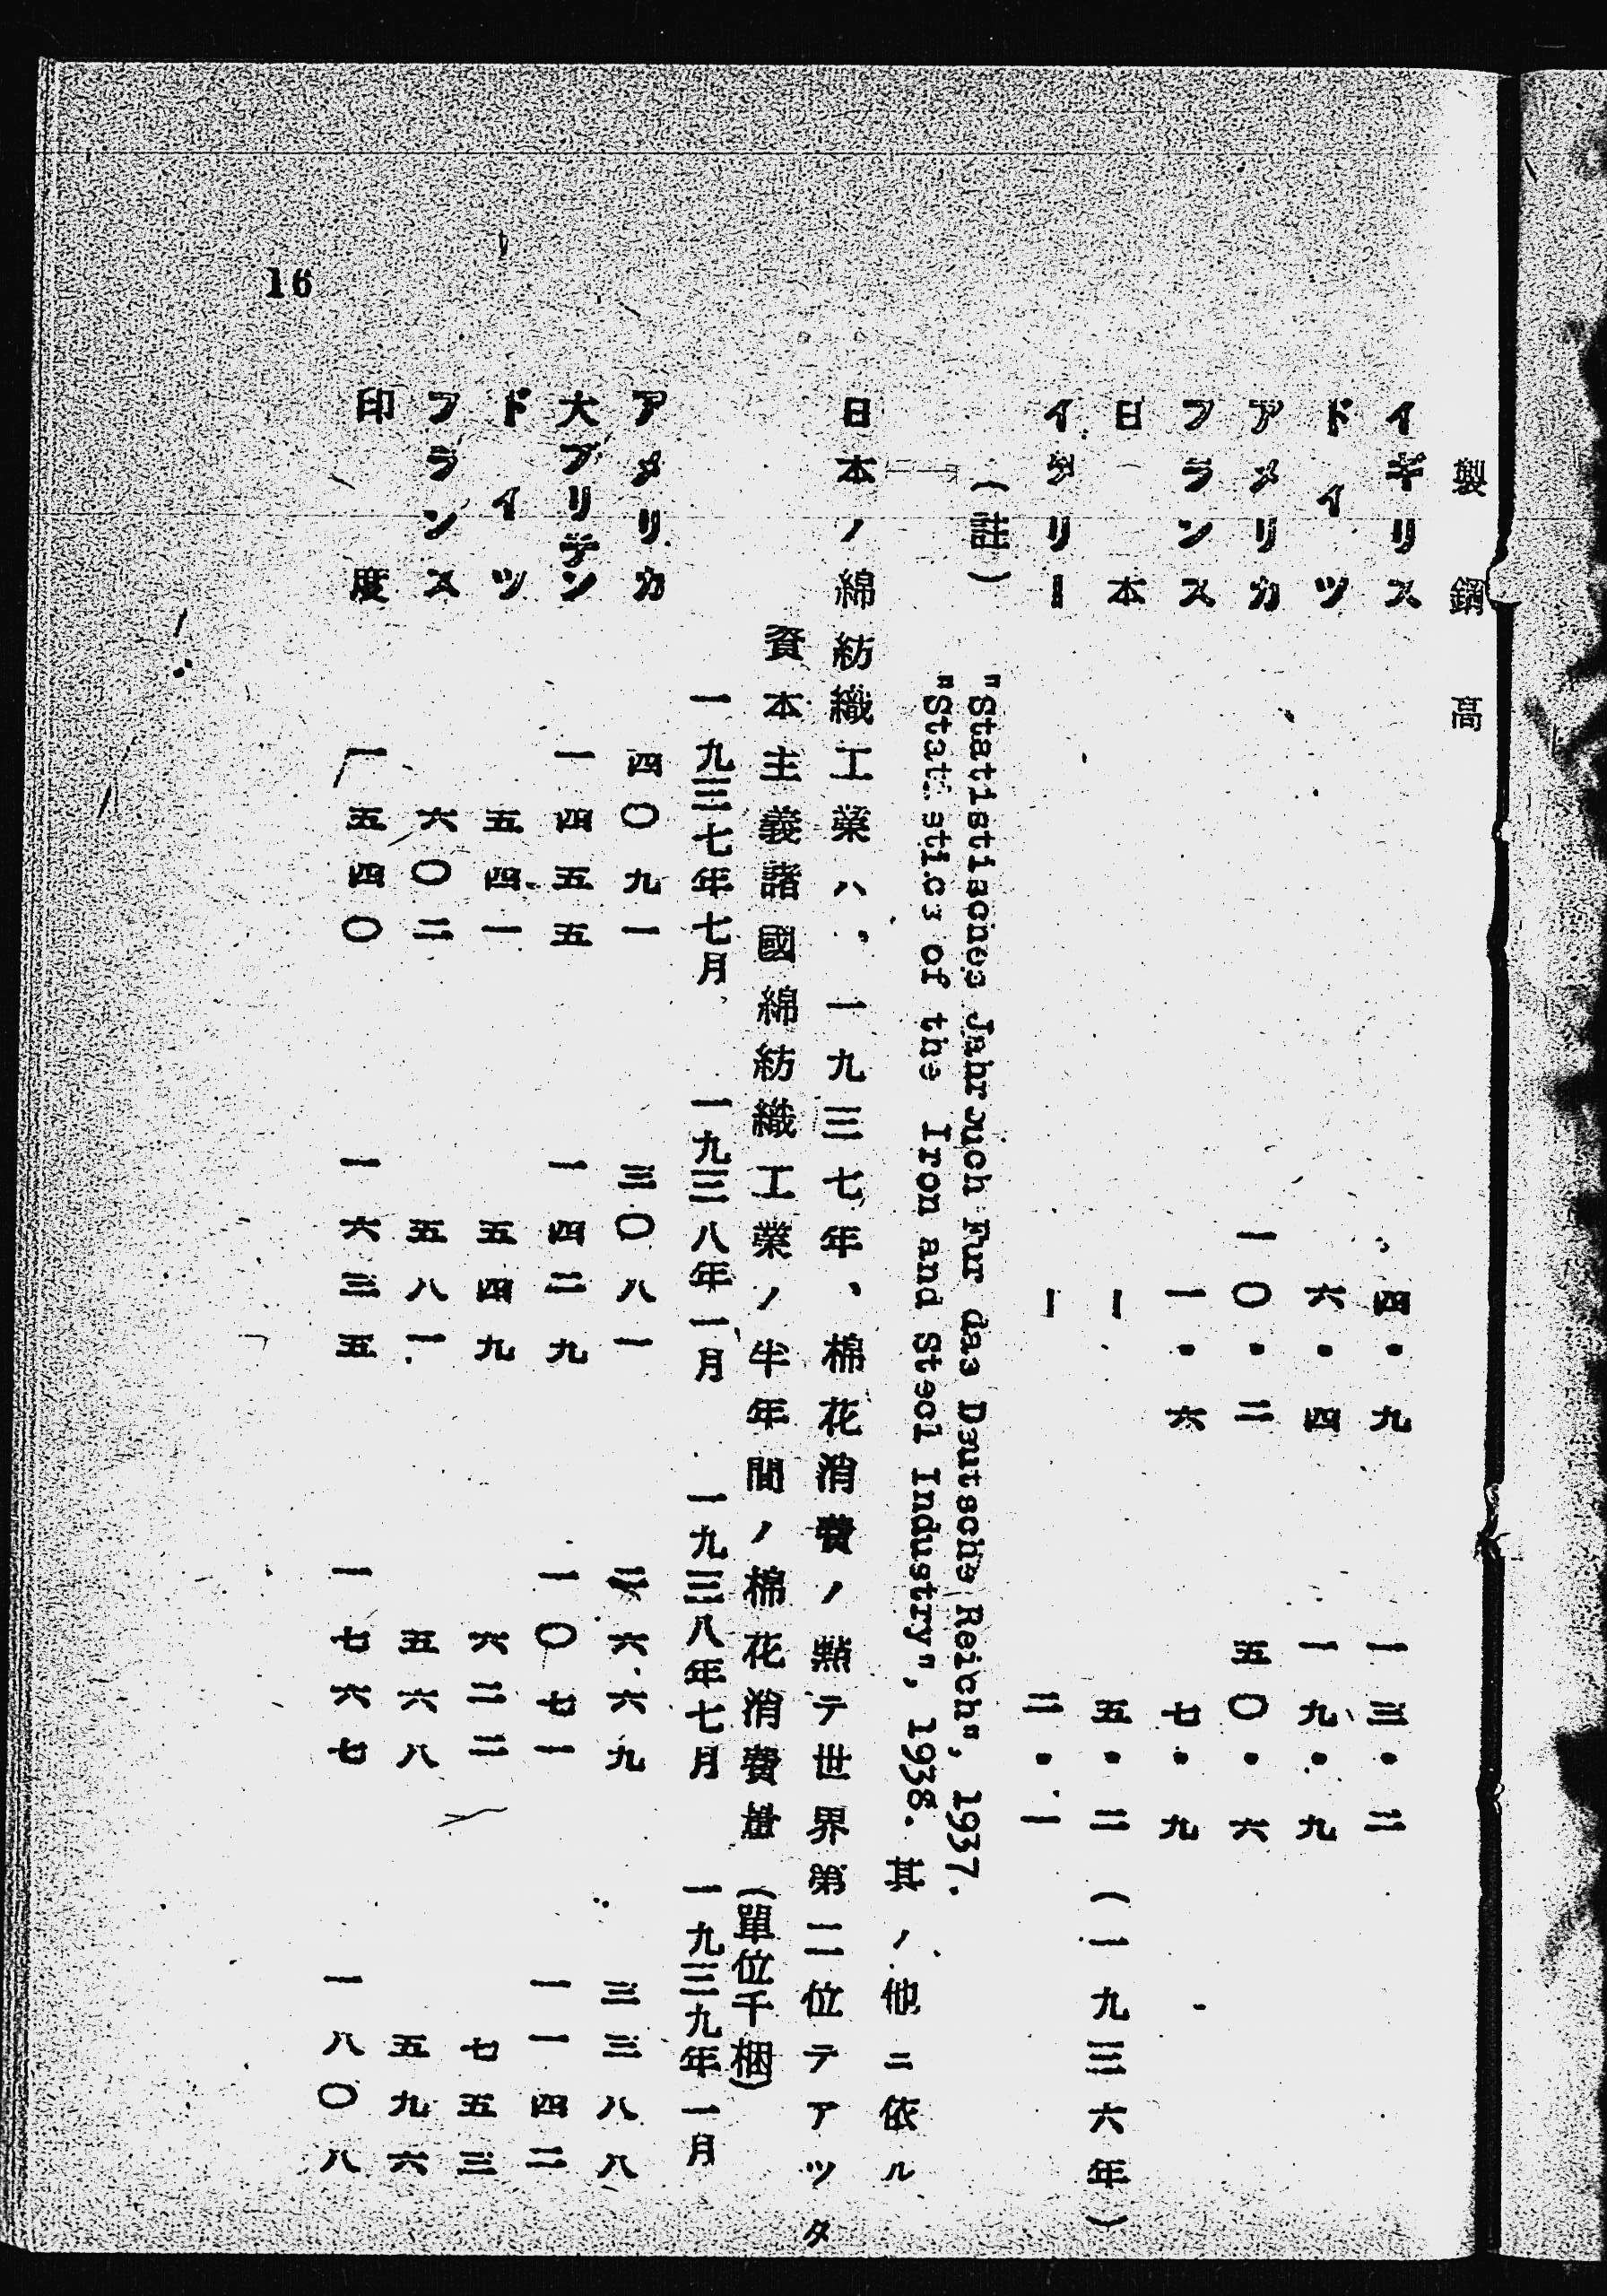 製鋼高
イギリス 四・九 一三・二
ドイツ 六・四 一九・九
アメリカ 一〇・二 五〇・六
フランス 一・六 七・九
日本 ー 五・二(一九三六年)
イタリー ー 二・一
(註) "Statistisches Jahrbuch Fur das Deutsche Reich", 1937.
"Statistics of the Iron and Steel Industry", 1938. 其ノ他ニ依ル
日本ノ綿紡織工業ハ、一九三七年、棉花消費ノ點テ世界第二位テアツタ
資本主義諸國綿紡織工業ノ半年間ノ棉花消費量(單位千梱)
一九三七年七月 一九三八年一月 一九三八年七月 一九三九年一月
アメリカ 四〇九一 三〇八一 二六六九 三三八八
大ブリテン 一四五五 一四二九 一〇七一 一一四二
ドイツ 五四一 五四九 六二二 七五三
フランス 六〇二 五八一 五六八 五九六
印度 一五四〇 一六三五 一七六七 一八〇八
16